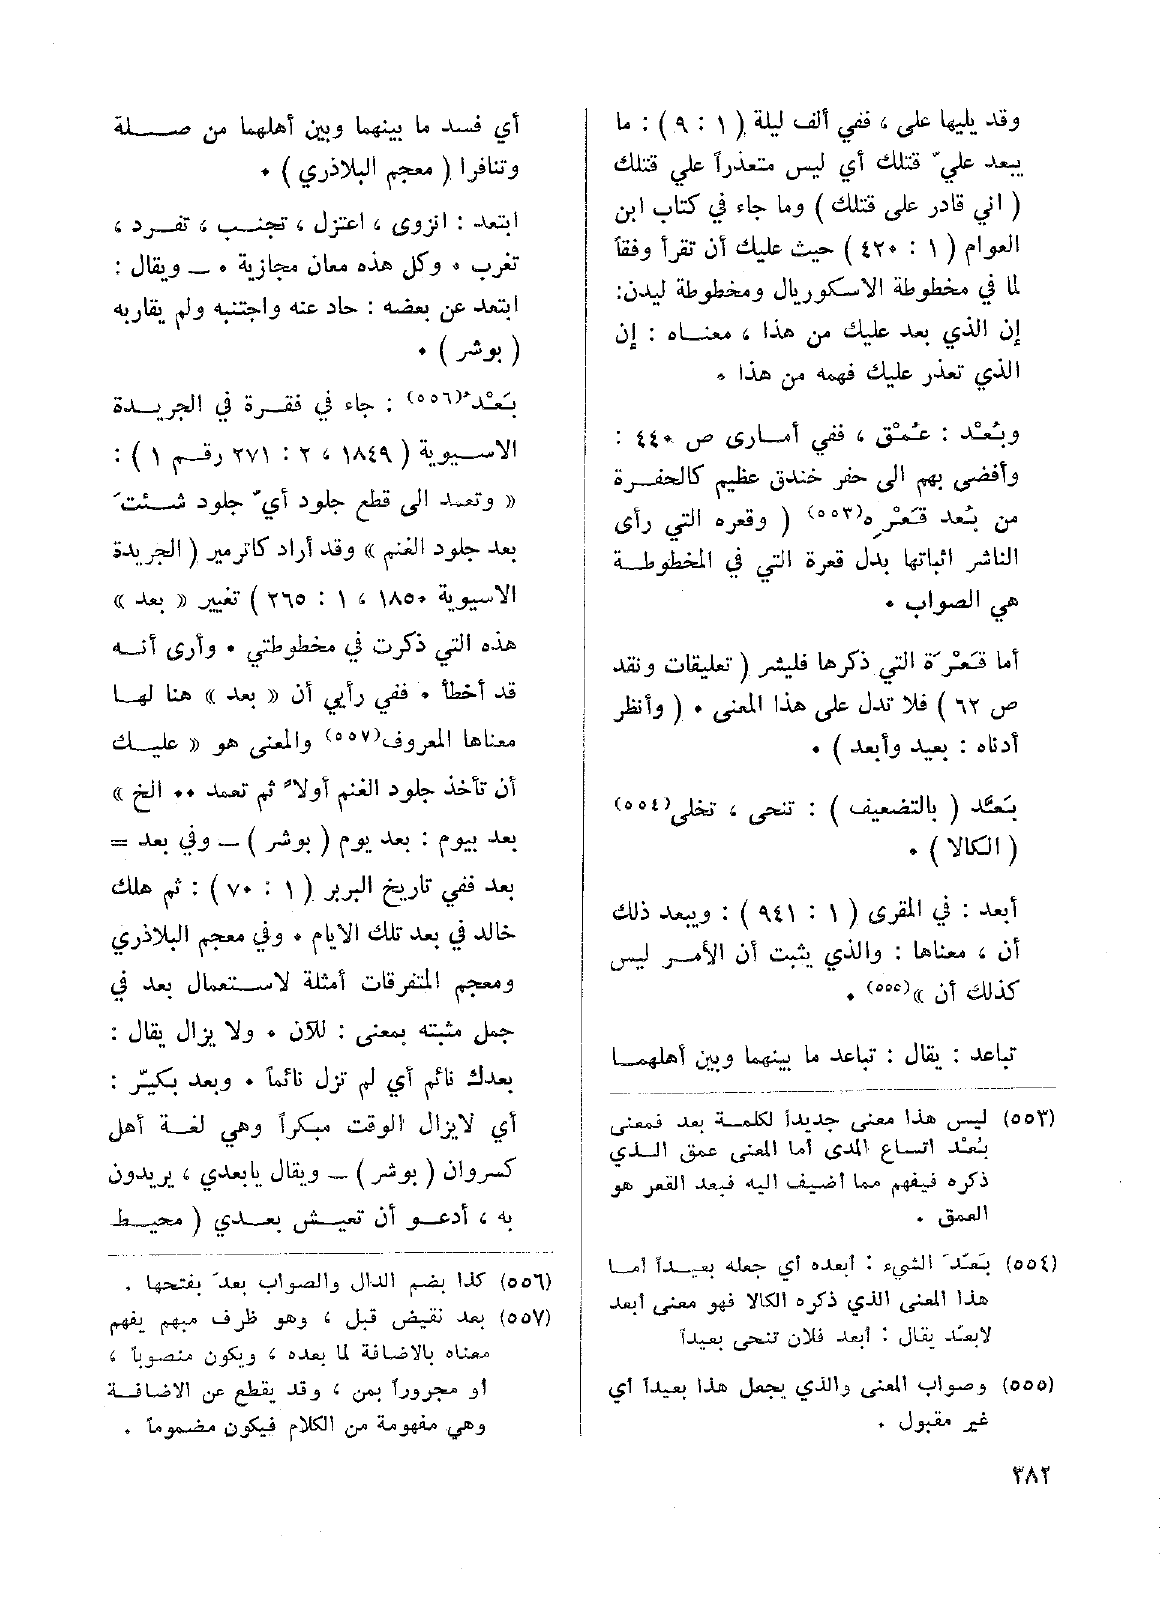 وقد يليها على ، ففي ألف ليلة ( ١ : ٩ ) : ما
يبعد عليّ قتلك أي ليس متعذراً علي قتلك
( اني قادر على قتلك ) وما جاء في كتاب ابن
العوام ( ١ : ٤٢٠ ) حيث عليك أن تقرأ وفقاً
لما في مخطوطة الاسكوريال ومخطوطة ليدن:
إن الذي بعد عليك من هذا ، معناه : إن
الذي تعذر عليك فهمه من هذا ٠
وبُعْد : عُمْق ، ففي أماري ص ٤٤٠ :
وأفضى بهم الى حفر خندق عظيم كالحفرة
من بُعد قَعْرِه(٥٥٣) ( وقعره التي رأى
الناشر اثباتها بدل قعرة التي في المخطوطة
هي الصواب ٠
أما قَعْرَة التي ذكرها فليشر ( تعليقات ونقد
ص ٦٢ ) فلا تدل على هذا المعنى ٠ ( وأنظر
أدناه : بعيد وأبعد ) ٠
بَعَّد ( بالتضعيف ) : تنحى ، تخلى(٥٥٤)
( الكالا ) ٠
أبعد : في المقرى ( ١ : ٩٤١ ) : ويبعد ذلك
أن ، معناها : والذي يثبت أن الأمر ليس
كذلك أن »(٥٥٥) ٠
تباعد : يقال : تباعد ما بينهما وبين أهلهما
(٥٥٣) ليس هذا معنى جديداً لكلمة بعد فمعنى
بُعْد اتساع المدى أما المعنى عمق الذي
ذكره فيفهم مما أضيف اليه فبعد القعر هو
العمق ٠
(٥٥٤) بَعَّدَ الشيء : أبعده أي جعله بعيداً أما
هذا المعنى الذي ذكره الكالا فهو معنى أبعد
لابعّد يقال : أبعد فلان تنحى بعيداً
(٥٥٥) وصواب المعنى والذي يجعل هذا بعيداً أي
غير مقبول ٠
أي فسد ما بينهما وبين أهلهما من صلة
وتنافرا ( معجم البلاذري ) ٠
ابتعد : انزوى ، اعتزل ، تجنب ، تفرد ،
تغرب ٠ وكل هذه معان مجازية ٠ ــ ويقال :
ابتعد عن بعضه : حاد عنه واجتنبه ولم يقاربه
( بوشر ) ٠
بَعْدُ(٥٥٦) : جاء في فقرة في الجريدة
الاسيوية ( ١٨٤٩ ، ٢ : ٢٧١ رقم ١ ) :
« وتعمد الى قطع جلود أيّ جلود شئتَ
بعد جلود الغنم » وقد أراد كاترمير ( الجريدة
الاسيوية ١٨٥٠ ، ١ : ٢٦٥ ) تغيير « بعد »
هذه التي ذكرت في مخطوطتي ٠ وأرى أنه
قد أخطأ ٠ ففي رأيي أن « بعد » هنا لها
معناها المعروف(٥٥٧) والمعنى هو « عليك
أن تأخذ جلود الغنم أولاً ثم تعمد ٠٠ الخ »
بعد بيوم : بعد يوم ( بوشر ) ــ وفي بعد =
بعد ففي تاريخ البربر ( ١ : ٧٠ ) : ثم هلك
خالد في بعد تلك الايام ٠ وفي معجم البلاذري
ومعجم المتفرقات أمثلة لاستعمال بعد في
جمل مثبته بمعنى : للآن ٠ ولا يزال يقال :
بعدك نائم أي لم تزل نائماً ٠ وبعد بكيّر :
أي لايزال الوقت مبكراً وهي لغة أهل
كسروان ( بوشر ) ــ ويقال يابعدي ، يريدون
به ، أدعو أن تعيش بعدي ( محيط
(٥٥٦) كذا بضم الدال والصواب بعدَ بفتحها ٠
(٥٥٧) بعد نقيض قبل ، وهو ظرف مبهم يفهم
معناه بالاضافة لما بعده ، ويكون منصوباً ،
أو مجروراً بمن ، وقد يقطع عن الاضافة
وهي مفهومة من الكلام فيكون مضموماً ٠
٣٨٢